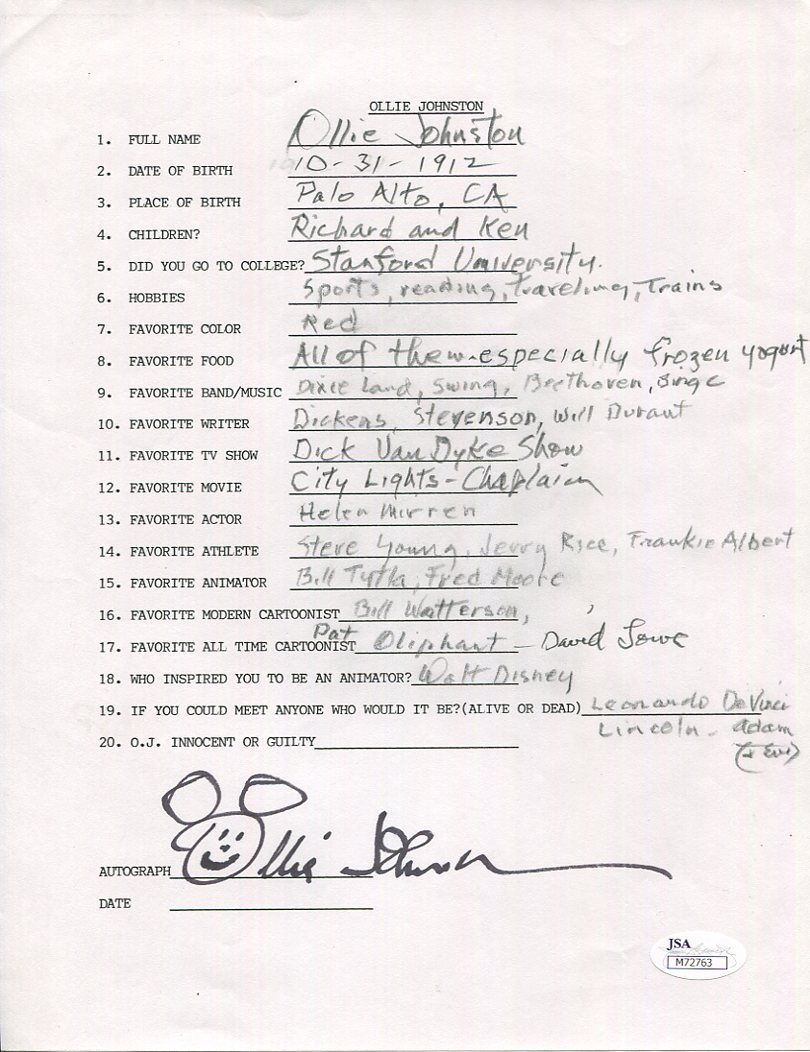 OLLIE JOHNSTON
1. FULL NAME Ollie Johnston
2. DATE OF BIRTH 10-31-1912
3. PLACE OF BIRTH Palo Alto, CA
4. CHILDREN? Richard and Ken
5. DID YOU GO TO COLLEGE? Stanford University.
6. HOBBIES Sports, reading, traveling, Trains
7. FAVORITE COLOR Red
8. FAVORITE FOOD All of them-especially frozen yogurt
9. FAVORITE BAND/MUSIC Dixie Land, Swing, Beethoven,
10. FAVORITE WRITER Dickens, Stevenson, Will Durant
11. FAVORITE TV SHOW Dick Van Dyke Show
12. FAVORITE MOVIE City Lights-
13. FAVORITE ACTOR Helen Mirren
14. FAVORITE ATHLETE Steve Young, Jerry Rice, Frankie Albert
15. FAVORITE ANIMATOR Bill Tytla, Fred Moore
16. FAVORITE MODERN CARTOONIST Bill Watterson,
17. FAVORITE ALL TIME CARTOONIST Pat Oliphant - David
18. WHO INSPIRED YOU TO BE AN ANIMATOR? Walt Disney
19. IF YOU COULD MEET ANYONE WHO WOULD IT BE?(ALIVE OR DEAD) Leonardo DaVinci
Lincoln - Adam
20. O.J. INNOCENT OR GUILTY
AUTOGRAPH Ollie Johnston
DATE
JSA
M72763